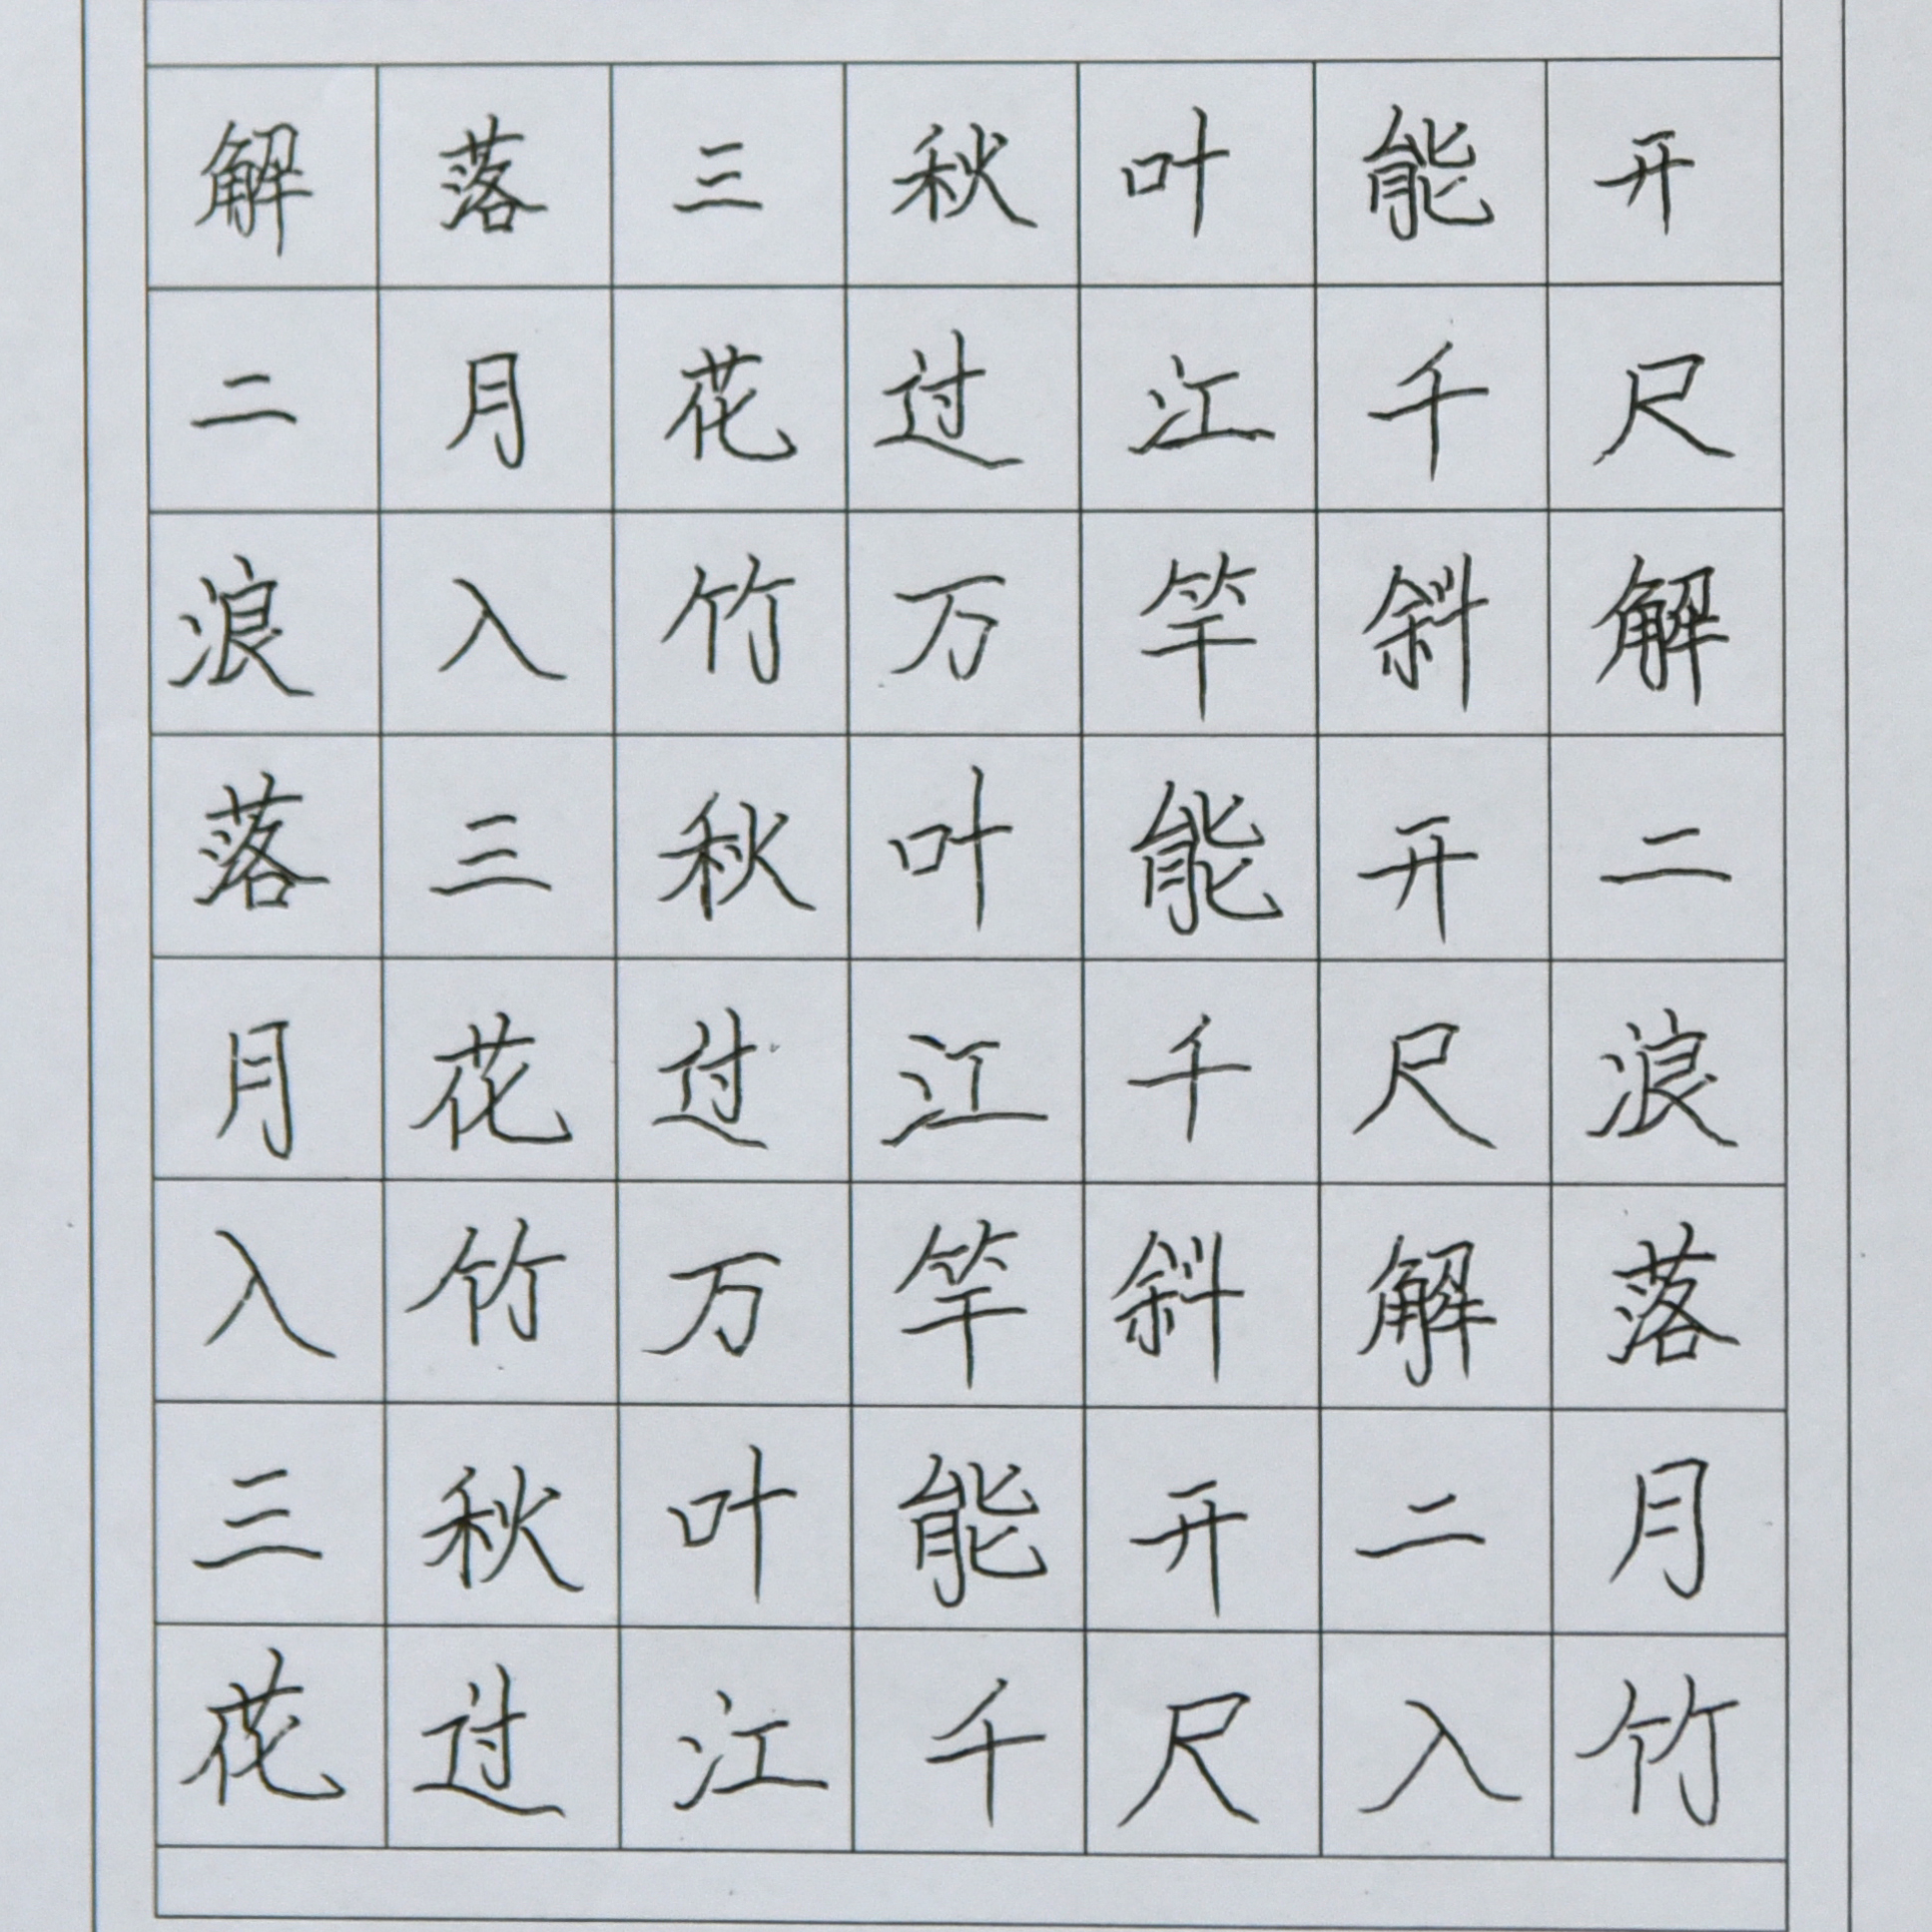 解落三秋叶能开
二月花过江千尺
浪入竹万竿斜解
落三秋叶能开二
月花过江千尺浪
入竹万竿斜解落
三秋叶能开二月
花过江千尺入竹